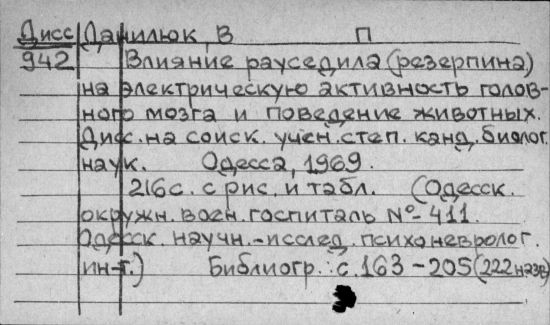 Дисс Данилюк, В П
942 Влияние рауседила (резерпина)
на электрическую активность голов-
ного мозга и поведение животных.
Дисс. на соиск. учен. степ. канд. биолог.
наук. Одесса, 1969.
216с. с рис. и табл. (Одесск.
окружн. воен. госпиталь № 411.
Одесск. научн.-исслед. психоневролог.
ин-т.) Библиогр.: с. 163-205 (222 назв)